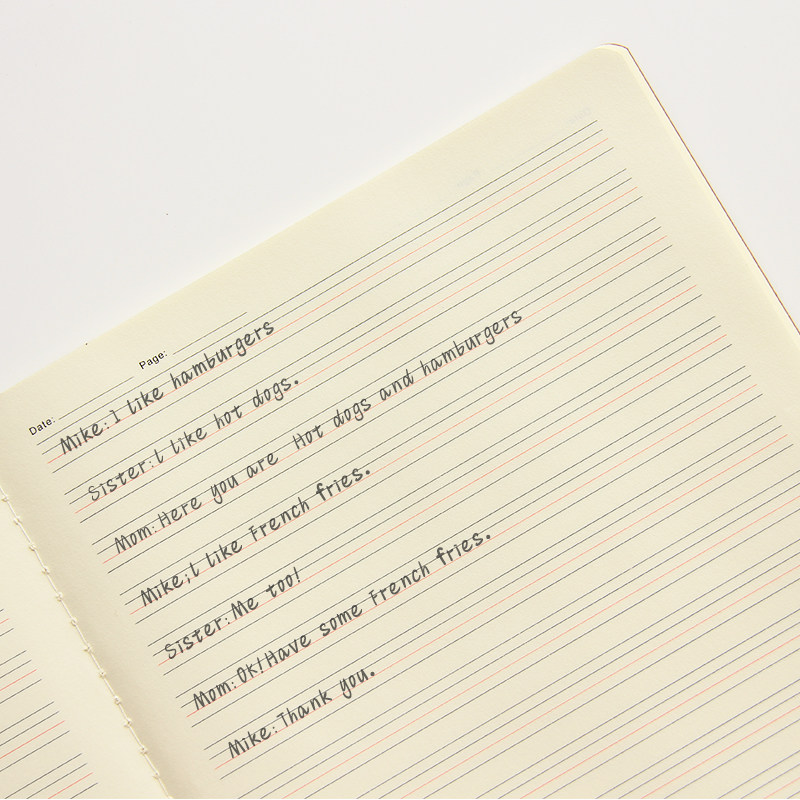 Page:
Date:
Mike: I like hamburgers
Sister: I like hot dogs.
Mom: Here you are Hot dogs and hamburgers
Mike; I like French fries.
Sister: Me too!
Mom: OK! Have some French fries.
Mike: Thank you.